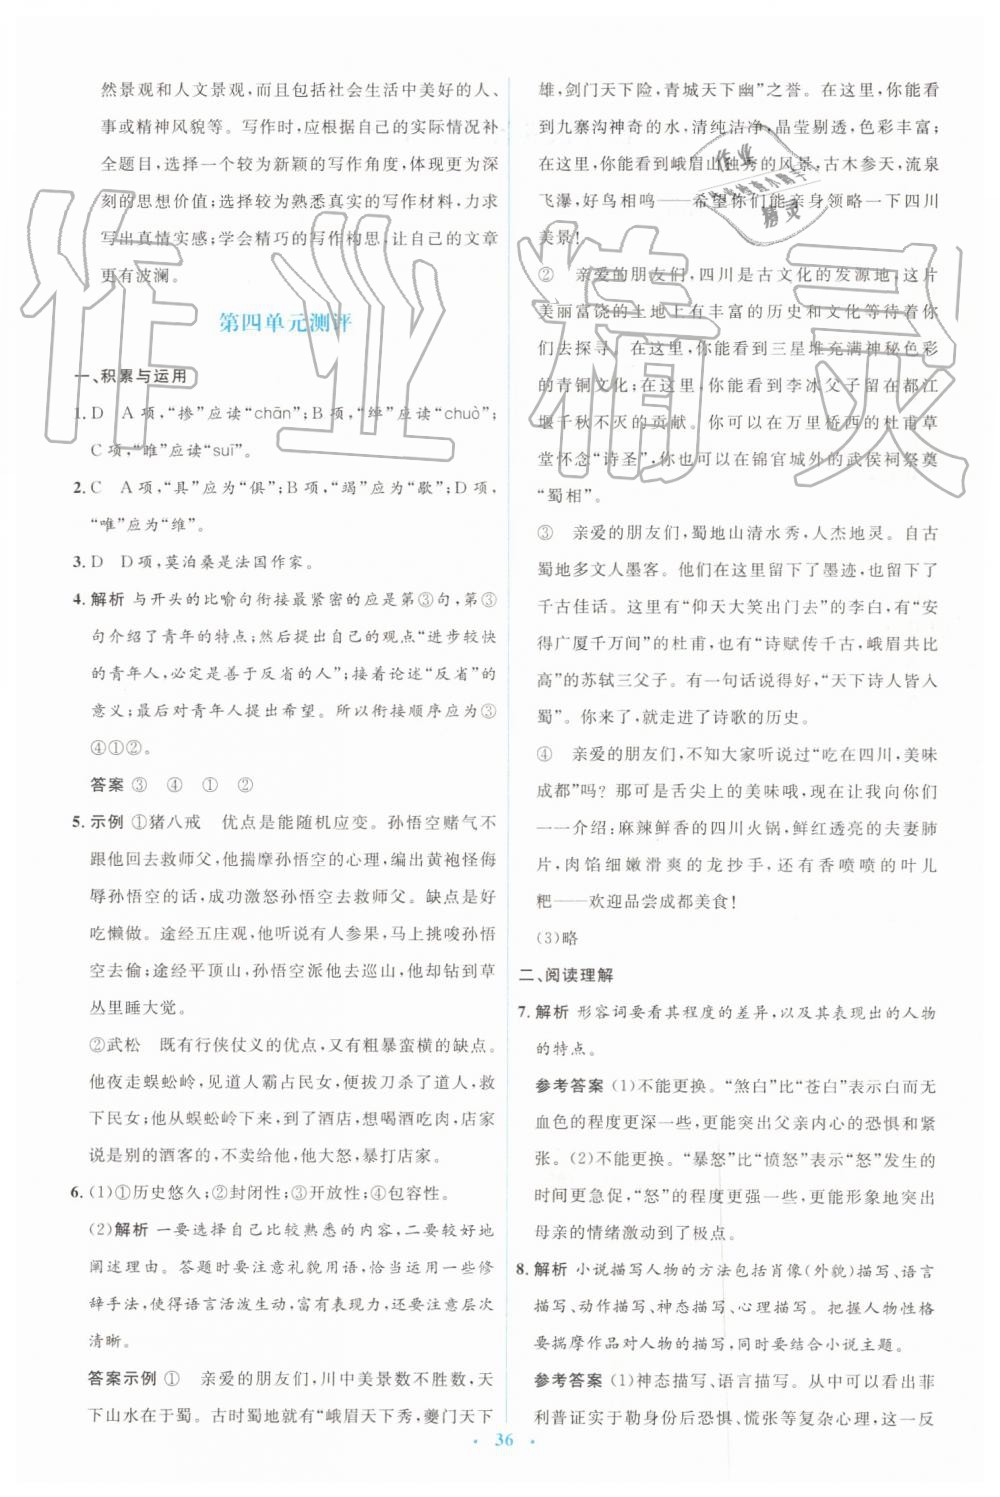 然景观和人文景观,而且包括社会生活中美好的人、
事或精神风貌等。写作时,应根据自己的实际情况补
全题目,选择一个较为新颖的写作角度,体现更为深
刻的思想价值;选择较为熟悉真实的写作材料,力求
写出真情实感;学会精巧的写作构思,让自己的文章
更有波澜。
第四单元测评
一、积累与运用
1. D A项,“掺”应读“chān”;B项,“绰”应读“chuò”;
C项,“睢”应读“suī”。
2. C A项,“具”应为“俱”;B项,“竭”应为“歇”;D项,
“唯”应为“维”。
3. D D项,莫泊桑是法国作家。
4. 解析 与开头的比喻句衔接最紧密的应是第③句,第③
句介绍了青年的特点;然后提出自己的观点“进步较快
的青年人,必定是善于反省的人”;接着论述“反省”的
意义;最后对青年人提出希望。所以衔接顺序应为③
④①②。
答案 ③ ④ ① ②
5. 示例 ①猪八戒 优点是能随机应变。孙悟空赌气不
跟他回去救师父,他揣摩孙悟空的心理,编出黄袍怪侮
辱孙悟空的话,成功激怒孙悟空去救师父。缺点是好
吃懒做。途经五庄观,他听说有人参果,马上挑唆孙悟
空去偷;途经平顶山,孙悟空派他去巡山,他却钻到草
丛里睡大觉。
②武松 既有行侠仗义的优点,又有粗暴蛮横的缺点。
他夜走蜈蚣岭,见道人霸占民女,便拔刀杀了道人,救
下民女;他从蜈蚣岭下来,到了酒店,想喝酒吃肉,店家
说是别的酒客的,不卖给他,他大怒,暴打店家。
6. (1)①历史悠久;②封闭性;③开放性;④包容性。
(2)解析 一要选择自己比较熟悉的内容,二要较好地
阐述理由。答题时要注意礼貌用语,恰当运用一些修
辞手法,使得语言活泼生动,富有表现力,还要注意层次
清晰。
答案示例 ① 亲爱的朋友们,川中美景数不胜数,天
下山水在于蜀。古时蜀地就有“峨眉天下秀,夔门天下
雄,剑门天下险,青城天下幽”之誉。在这里,你能看
到九寨沟神奇的水,清纯洁净,晶莹剔透,色彩丰富;
在这里,你能看到峨眉山独秀的风景,古木参天,流泉
飞瀑,好鸟相鸣——希望你们能亲身领略一下四川
美景!
② 亲爱的朋友们,四川是古文化的发源地,这片
美丽富饶的土地上有丰富的历史和文化等待着你
们去探寻。在这里,你能看到三星堆充满神秘色彩
的青铜文化;在这里,你能看到李冰父子留在都江
堰千秋不灭的贡献。你可以在万里桥西的杜甫草
堂怀念“诗圣”,你可以在锦官城外的武侯祠祭奠
“蜀相”。
③ 亲爱的朋友们,蜀地山清水秀,人杰地灵。自古
蜀地多文人墨客。他们在这里留下了墨迹,也留下了
千古佳话。这里有“仰天大笑出门去”的李白,有“安
得广厦千万间”的杜甫,有“诗赋传千古,峨眉共比
高”的苏轼三父子。有一句话说得好,“天下诗人皆入
蜀”。你来了,就走进了诗歌的历史。
④ 亲爱的朋友们,不知大家听说过“吃在四川,美味
成都”吗?那可是舌尖上的美味哦,下面我来向你们
一一介绍:麻辣鲜香的四川火锅,鲜红透亮的夫妻肺
片,肉馅细嫩滑爽的龙抄手,还有香喷喷的叶儿
粑——欢迎品尝成都美食!
(3)略
二、阅读理解
7. 解析 形容词要看其程度的差异,以及其表现出的人物
的特点。
参考答案 (1)不能更换。“煞白”比“苍白”表示白而无
血色的程度更深一些,更能突出父亲内心的恐惧和紧
张。(2)不能更换。“暴怒”比“愤怒”表示“怒”发生的
时间更急促,“怒”的程度更强一些,更能形象地突出
母亲的情绪激动到了极点。
8. 解析 小说描写人物的方法包括肖像(外貌)描写、语言
描写、动作描写、神态描写、心理描写。把握人物性格
要揣摩作品对人物的描写,同时要结合小说主题。
参考答案 (1)神态描写、语言描写。从中可以看出菲
利普证实于勒身份后恐惧、慌张等复杂心理,这一反
36
作业精灵
作业
精灵